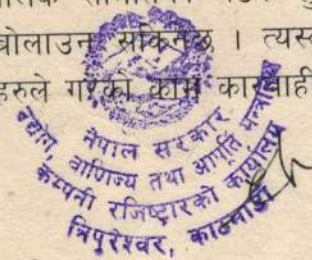 बोलाउन सकिनेछ । त्यस्त
हरुले गरेको काम कारवाही
नेपाल सरकार
उद्योग, वाणिज्य तथा आपूर्ति मन्त्रालय
कम्पनी रजिष्ट्रारको कार्यालय
त्रिपुरेश्वर, काठमाडौं